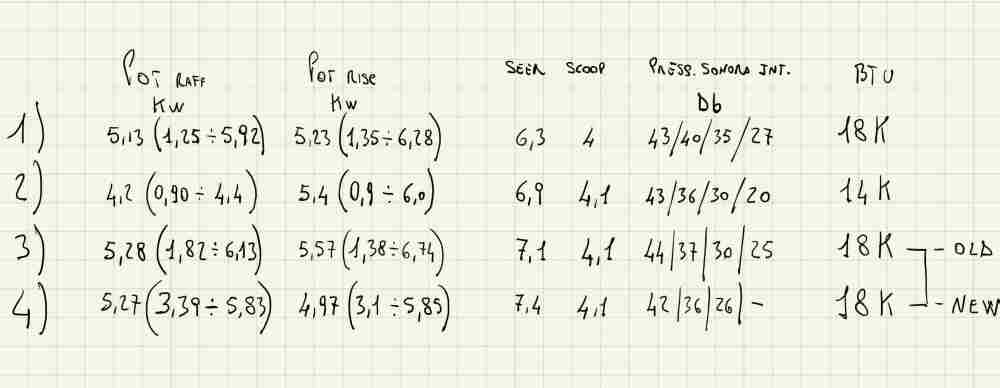 POT RAFF POT RISC SEER SCOOP PRESS. SONORA INT. BTU
KW KW Db
1) 5,13 (1,25÷5,92) 5,23 (1,35÷6,28) 6,3 4 43/40/35/27 18K
2) 4,2 (0,90÷4,4) 5,4 (0,9÷6,0) 6,9 4,1 43/36/30/20 14K
3) 5,28 (1,82÷6,13) 5,57 (1,38÷6,74) 7,1 4,1 44/37/30/25 18K - OLD
4) 5,27 (3,39÷5,83) 4,97 (3,1÷5,85) 7,4 4,1 42/36/26/- 18K - NEW